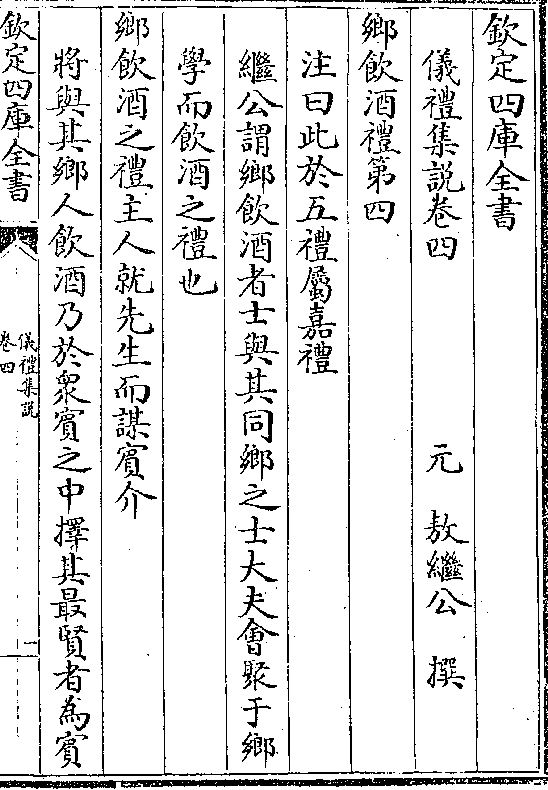 欽定四庫全書
儀禮集説卷四
元 敖繼公 撰
鄉飲酒禮第四
注曰此於五禮屬嘉禮
繼公謂鄉飲酒者士與其同鄉之士大夫會聚于鄉
學而飲酒之禮也
鄉飲酒之禮主人就先生而謀賓介
將與其鄉人飲酒乃於衆賓之中擇其最賢者為賓
欽定四庫全書
儀禮集説
卷四
一